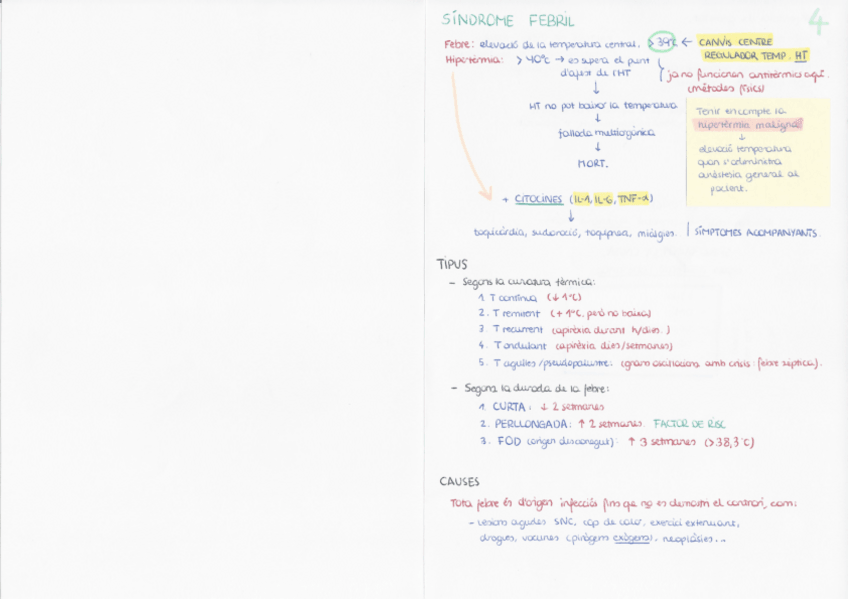 SÍNDROME FEBRIL
4
Febre: elevació de la temperatura central, > 39ºC ← CANVIS CENTRE
REGULADOR TEMP. HT
Hipertèrmia: > 40ºC → es supera el punt
d'ajust de l'HT
ja no funcionen antitèrmics aquí.
(mètodes físics)
↓
HT no pot baixar la temperatura
↓
fallada multiorgànica
↓
MORT.
Tenir en compte la
hipertèrmia maligna
↓
elevació temperatura
quan s'administra
anestèsia general al
pacient.
+ CITOCINES (IL-1, IL-6, TNF-α)
↓
taquicàrdia, sudoració, taquipnea, miàlgies. | SÍMPTOMES ACOMPANYANTS.
TIPUS
– Segons la curvatura tèrmica:
1. T contínua (↓ 1ºC)
2. T remitent (+ 1ºC, però no baixa)
3. T recurrent (apirèxia durant h/dies.)
4. T ondulant (apirèxia dies/setmanes)
5. T agulles/pseudopalustre: (grans oscil·lacions amb crisis: febre sèptica).
– Segons la durada de la febre:
1. CURTA: ↓ 2 setmanes
2. PERLLONGADA: ↑ 2 setmanes. FACTOR DE RISC
3. FOD (origen desconegut): ↑ 3 setmanes (>38,3ºC)
CAUSES
Tota febre és d'origen infecciós fins que no es demostri el contrari, com:
- Lesions agudes SNC, cop de calor, exercici extenuant,
drogues, vacunes (pirògens exògens), neoplàsies...